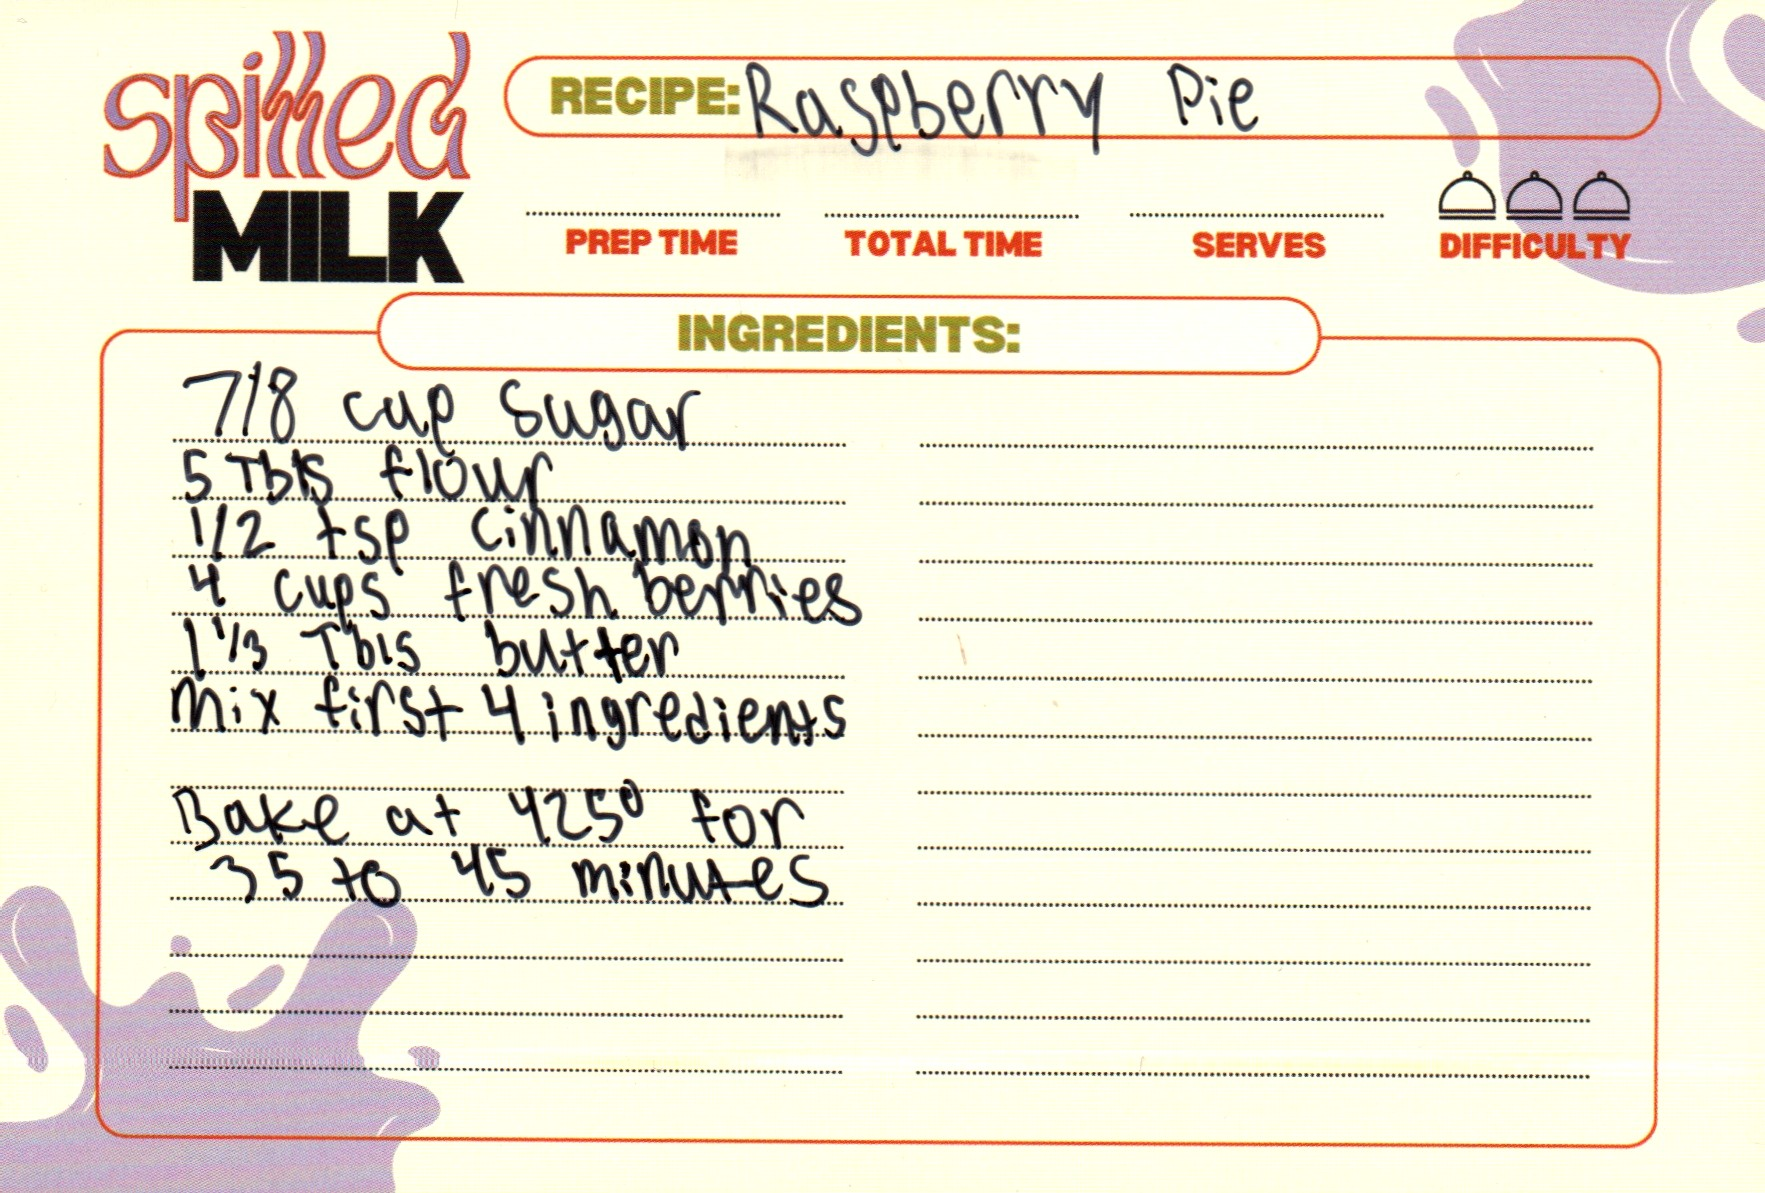 spilled
MILK
RECIPE: Raspberry Pie
PREP TIME
TOTAL TIME
SERVES
DIFFICULTY
INGREDIENTS:
7/8 cup sugar
5 Tbls flour
1/2 tsp cinnamon
4 cups fresh berries
1 1/3 Tbls butter
mix first 4 ingredients
Bake at 425° for
35 to 45 minutes